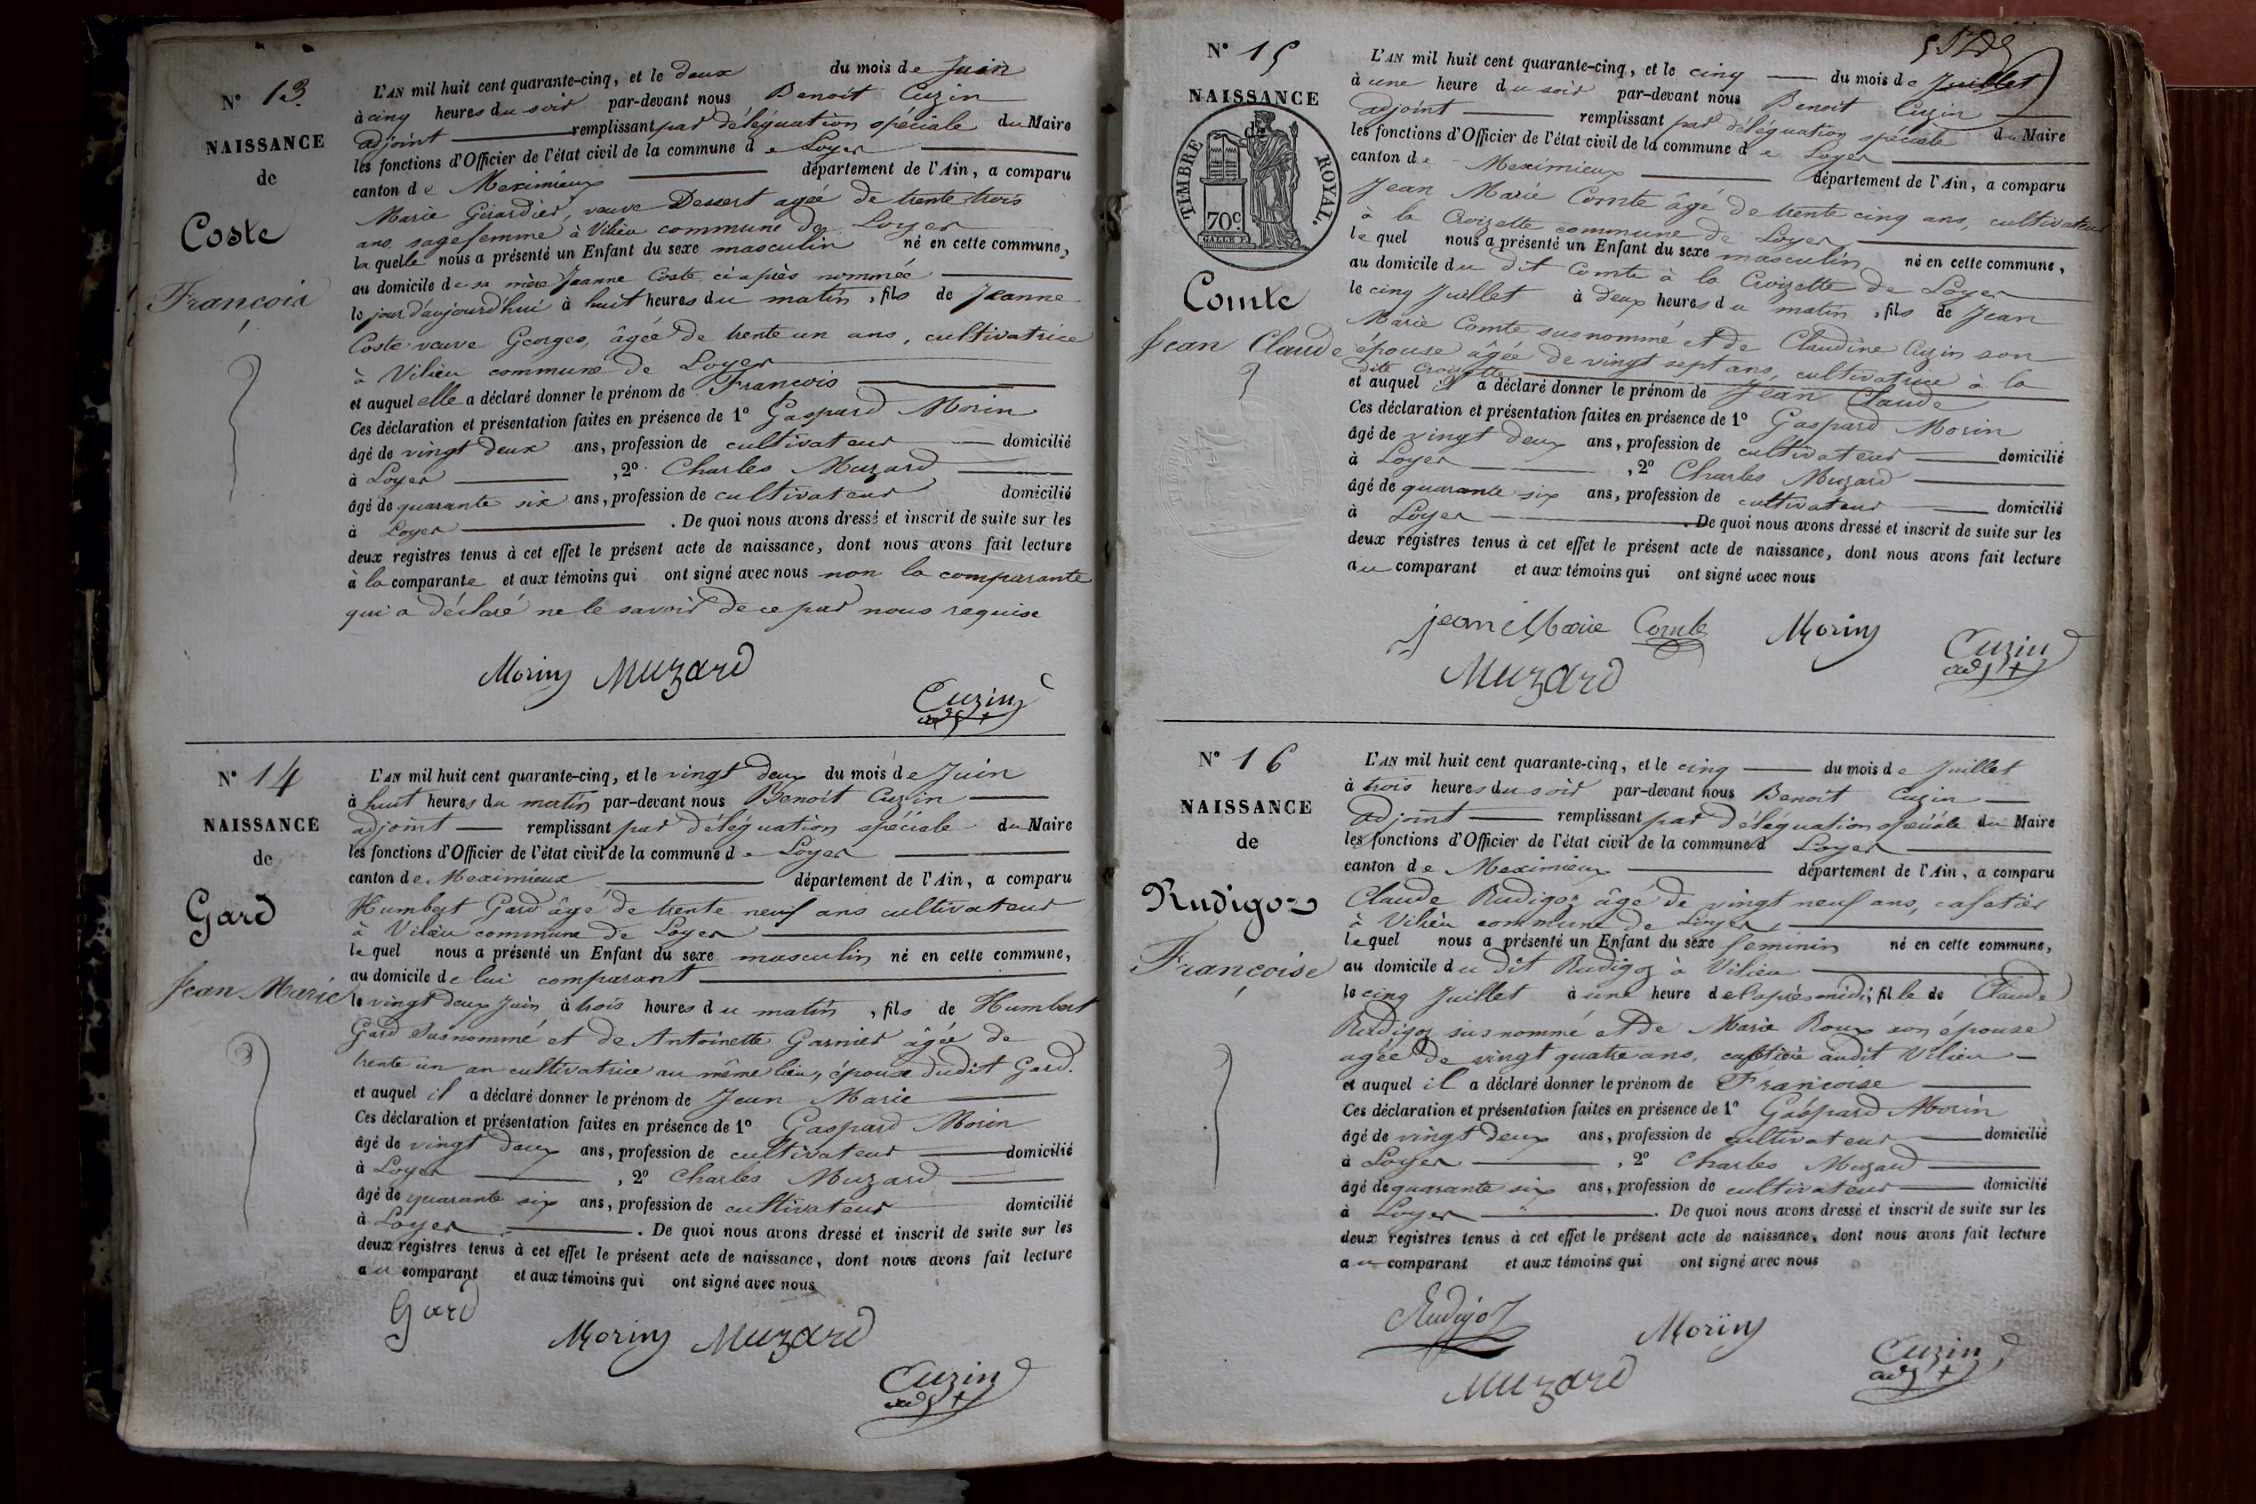 N° 13
NAISSANCE
de
Coste
François
L'AN mil huit cent quarante-cinq, et le deux du mois de Juin
à cinq heures du soir par-devant nous Benoît Cuzin
adjoint remplissant par délégation spéciale du Maire
les fonctions d'Officier de l'état civil de la commune de Loyes
canton de Meximieux département de l'Ain, a comparu
Marie Girardier, veuve Dessert agée de trente trois
ans, sagefemme à Vilieu commune de Loyes
laquelle nous a présenté un Enfant du sexe masculin né en cette commune,
au domicile de sa mère Jeanne Coste ci après nommée
le jour d'aujourd'hui à huit heures du matin, fils de Jeanne
Coste veuve Georges, âgée de trente un ans, cultivatrice
à Vilieu commune de Loyes
et auquel elle a déclaré donner le prénom de François
Ces déclaration et présentation faites en présence de 1° Gaspard Morin
âgé de vingt deux ans, profession de cultivateur domicilié
à Loyes , 2° Charles Muzard
âgé de quarante six ans, profession de cultivateur domicilié
à Loyes . De quoi nous avons dressé et inscrit de suite sur les
deux registres tenus à cet effet le présent acte de naissance, dont nous avons fait lecture
à la comparante et aux témoins qui ont signé avec nous non la comparante
qui a déclaré ne le savoir de ce par nous requise
Morin Muzard
Cuzin
adjt
N° 14
NAISSANCE
de
Gard
Jean Marie
L'AN mil huit cent quarante-cinq, et le vingt deux du mois de Juin
à huit heures du matin par-devant nous Benoît Cuzin
adjoint remplissant par délégation spéciale du Maire
les fonctions d'Officier de l'état civil de la commune de Loyes
canton de Meximieux département de l'Ain, a comparu
Humbert Gard âgé de trente neuf ans cultivateur
à Vilieu commune de Loyes
lequel nous a présenté un Enfant du sexe masculin né en cette commune,
au domicile de lui comparant
le vingt deux Juin à trois heures du matin, fils de Humbert
Gard susnommé et de Antoinette Garnier âgée de
trente un an cultivatrice au même lieu, épouse dudit Gard.
et auquel il a déclaré donner le prénom de Jean Marie
Ces déclaration et présentation faites en présence de 1° Gaspard Morin
âgé de vingt deux ans, profession de cultivateur domicilié
à Loyes , 2° Charles Muzard
âgé de quarante six ans, profession de cultivateur domicilié
à Loyes . De quoi nous avons dressé et inscrit de suite sur les
deux registres tenus à cet effet le présent acte de naissance, dont nous avons fait lecture
au comparant et aux témoins qui ont signé avec nous
Gard
Morin Muzard
Cuzin
adjt
N° 15
NAISSANCE
TIMBRE ROYAL.
70c.
Comte
Jean Claude
L'AN mil huit cent quarante-cinq, et le cinq du mois de Juillet
à une heure du soir par-devant nous Benoît Cuzin
adjoint remplissant par délégation spéciale du Maire
les fonctions d'Officier de l'état civil de la commune de Loyes
canton de Meximieux département de l'Ain, a comparu
Jean Marie Comte âgé de trente cinq ans, cultivateur
à la Croizette commune de Loyes
lequel nous a présenté un Enfant du sexe masculin né en cette commune,
au domicile du dit Comte à la Croizette de Loyes
le cinq Juillet à deux heures du matin, fils de Jean
Marie Comte susnommé et de Claudine Cuzin son
épouse âgée de vingt sept ans, cultivatrice à la
dite Croizette
et auquel il a déclaré donner le prénom de Jean Claude
Ces déclaration et présentation faites en présence de 1° Gaspard Morin
âgé de vingt deux ans, profession de cultivateur domicilié
à Loyes , 2° Charles Muzard
âgé de quarante six ans, profession de cultivateur domicilié
à Loyes . De quoi nous avons dressé et inscrit de suite sur les
deux registres tenus à cet effet le présent acte de naissance, dont nous avons fait lecture
au comparant et aux témoins qui ont signé avec nous
jean Marie Comte Morin
Cuzin
adjt
Muzard
N° 16
NAISSANCE
de
Rudigoz
Françoise
L'AN mil huit cent quarante-cinq, et le cinq du mois de Juillet
à trois heures du soir par-devant nous Benoît Cuzin
adjoint remplissant par délégation spéciale du Maire
les fonctions d'Officier de l'état civil de la commune d Loyes
canton de Meximieux département de l'Ain, a comparu
Claude Rudigoz âgé de vingt neuf ans, cafetier
à Vilieu commune de Loyes,
lequel nous a présenté un Enfant du sexe feminin né en cette commune,
au domicile du dit Rudigoz à Vilieu
le cinq Juillet à une heure de l'après midi, fille de Claude
Rudigoz susnommé et de Marie Roux son épouse
agée de vingt quatre ans, cafetière audit Vilieu
et auquel il a déclaré donner le prénom de Françoise
Ces déclaration et présentation faites en présence de 1° Gaspard Morin
âgé de vingt deux ans, profession de cultivateur domicilié
à Loyes , 2° Charles Muzard
âgé de quarante six ans, profession de cultivateur domicilié
à Loyes . De quoi nous avons dressé et inscrit de suite sur les
deux registres tenus à cet effet le présent acte de naissance, dont nous avons fait lecture
au comparant et aux témoins qui ont signé avec nous
Rudigoz
Morin
Cuzin
adjt
Muzard